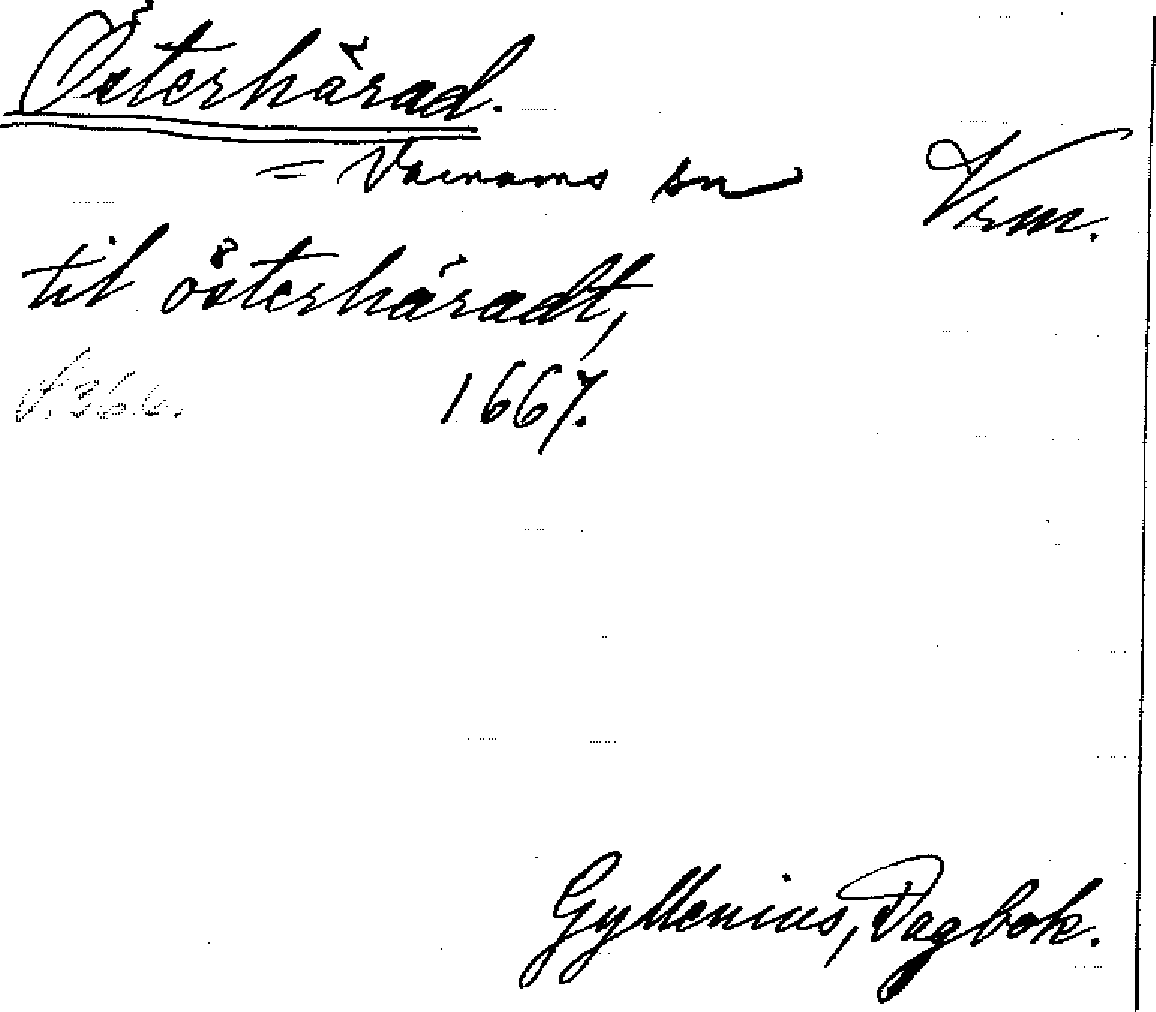 Österhärad.
= Varnums sn
Vrm.
til österhäradt,
S. 366.
1667.
Gyllenius, Dagbok.